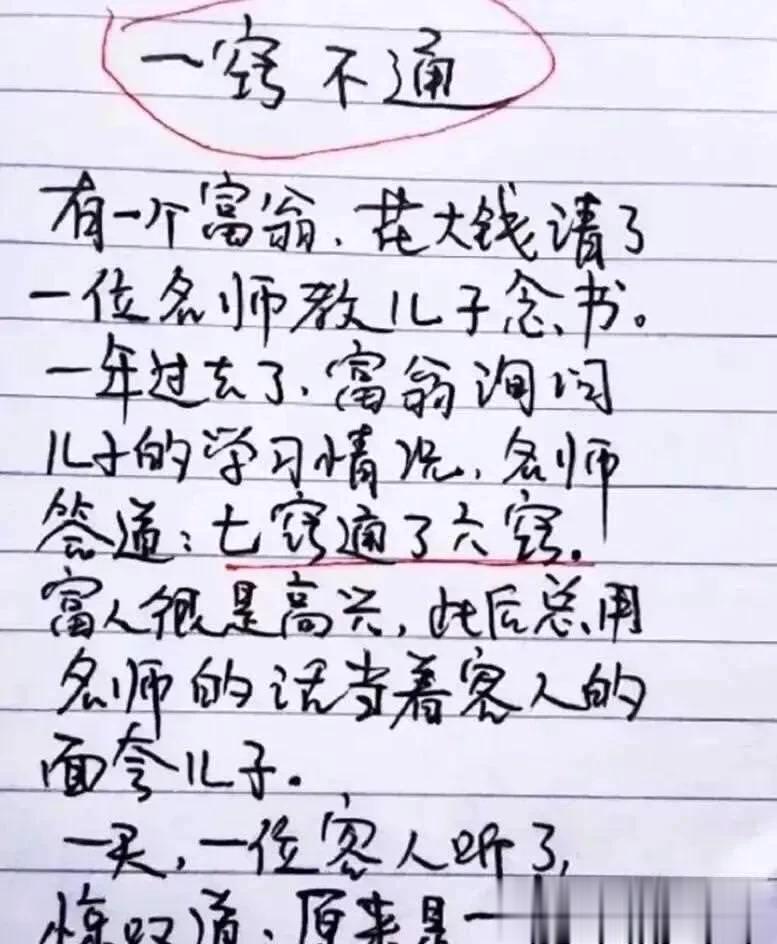 一窍不通
有一个富翁，花大钱请了
一位名师教儿子念书。
一年过去了，富翁询问
儿子的学习情况，名师
答道：七窍通了六窍。
富人很是高兴，此后总用
名师的话当着客人的
面夸儿子。
一天，一位客人听了，
惊叹道：原来是一